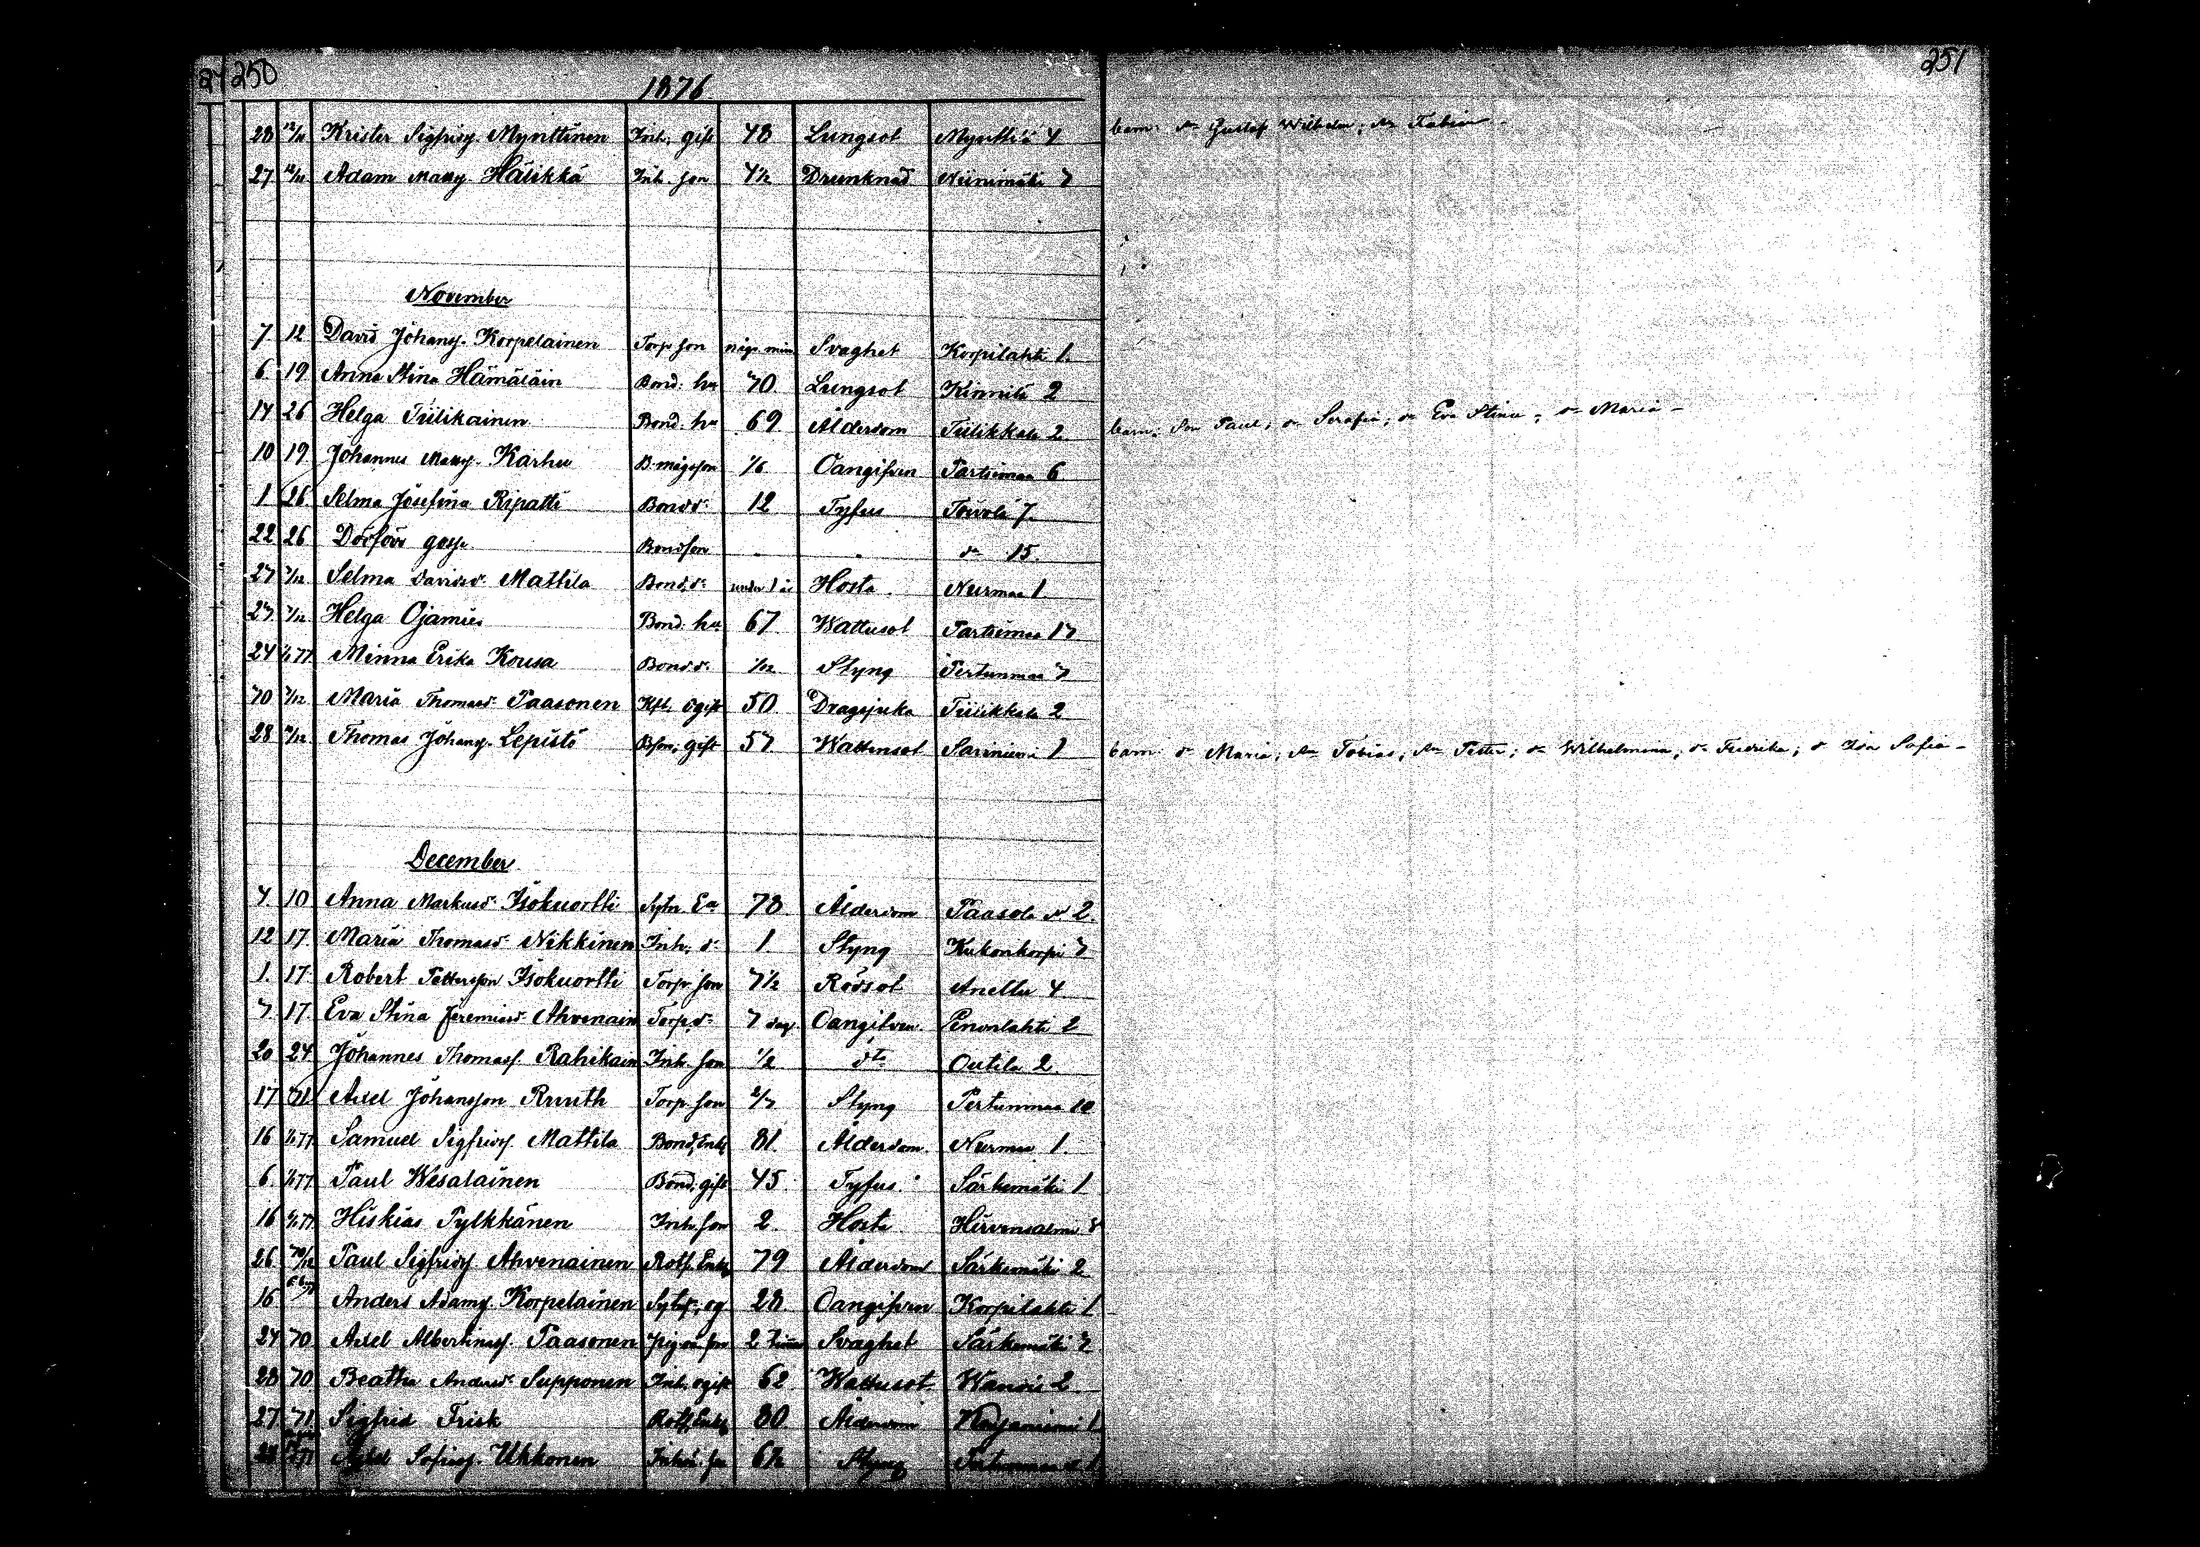 250
1876.
251
28 12/11 Krister Sigfridss. Mynttinen Inh. gift 48 Lungsot Mynttilä 4 barn: Gustaf Wilhelm; Tobias
27 12/11 Adam Matss. Häükkä Inh. son 4½ Drunknad Niinimäki 7
November
7. 12 David Johanss. Korpelainen Torp. son någr. min Svaghet Korpilahti 1.
6 19 Anna Stina Hämäläin Bond. hu 70 Lungsot Kinnilä 2
14 26 Helga Tiilikainen Bond. hu 69 Ålderdom Tiilikkala 2 barn: Son Paul; dr Serafia; dr Eva Stina; dr Maria
10 19 Johannes Matss. Karhu B. mågsson 1/6 Oangifven Partsimaa 6
1 26 Selma Josefina Ripatti Bond. d. 12 Tyfus Toivola 7.
22 26 Dödfödt gosse Bondson do 15.
27 3/12 Selma Davidsd. Mattila Bond. d. under 1 år Hosta Nurmaa 1
27 3/12 Helga Ojamies Bond. hu 67 Wattusot Partsimaa 17
24 1/1 77 Minna Erika Kousa Bond. d. 1/12 Styng Pertunmaa 7
30 3/12 Maria Thomasd. Paasonen ogift 50 Dragsjuka Tiilikkala 2
28 10/12 Thomas Johanss. Lepistö Bson; gift 57 Wattusot Sarviniemi 1 barn: dr Maria; Sn Tobias; Sn Petter; dr Wilhelmina; dr Fredrika; dr Ida Sofia
December
4. 10 Anna Markusd. Isokuortti Sytn. Ea 78 Ålderdom Paasola № 2.
12 17 Maria Thomasd. Nikkinen Inh. d. 1. Styng Kukonkorpi 7
1. 17 Robert Pettersson Isokuortti Torp. son 7½ Rödsot Anettu 4
7. 17. Eva Stina Jeremiasd. Ahvenain Torp. d. 7 dag. Oangifven Penonlahti 2
20 24 Johannes Thomass. Rahikain Inh. son ½ dto Outila 2
17 31 Axel Johansson Ruuth Torp. son 2/7 Styng Pertunmaa 10
16 1/1 77 Samuel Sigfridss. Mattila Bond, Enkl. 81. Ålderdom. Nurmaa 1.
6. 1/1 77 Paul Wesalainen Bond, gift 45 Tyfus. Särkemäki 1
16 77 Hiskias Pylkkänen Inh. son 2. Hosta Hirvensalmi 8
26 30/12 Paul Sigfridss. Ahvenainen Rotf. Enkl 79 Ålderdom Särkemäki 2
16 Anders Adamss. Korpelainen Sytn., og 28 Oangifven Korpilahti 1
24 30 Axel Albertinass. Paasonen pig. oä. son 2 timm Svaghet Särkemäki 7
28 30 Beatha Andersd. Supponen Inh. ogift 62 Wattusot. Wanois 2
27 31 Sigfrid Frisk Rotf. Enkl 80 Ålderdom 1
28 Sofiass. Ukkonen Inhis. son 6½ Styng Pertunmaa 1